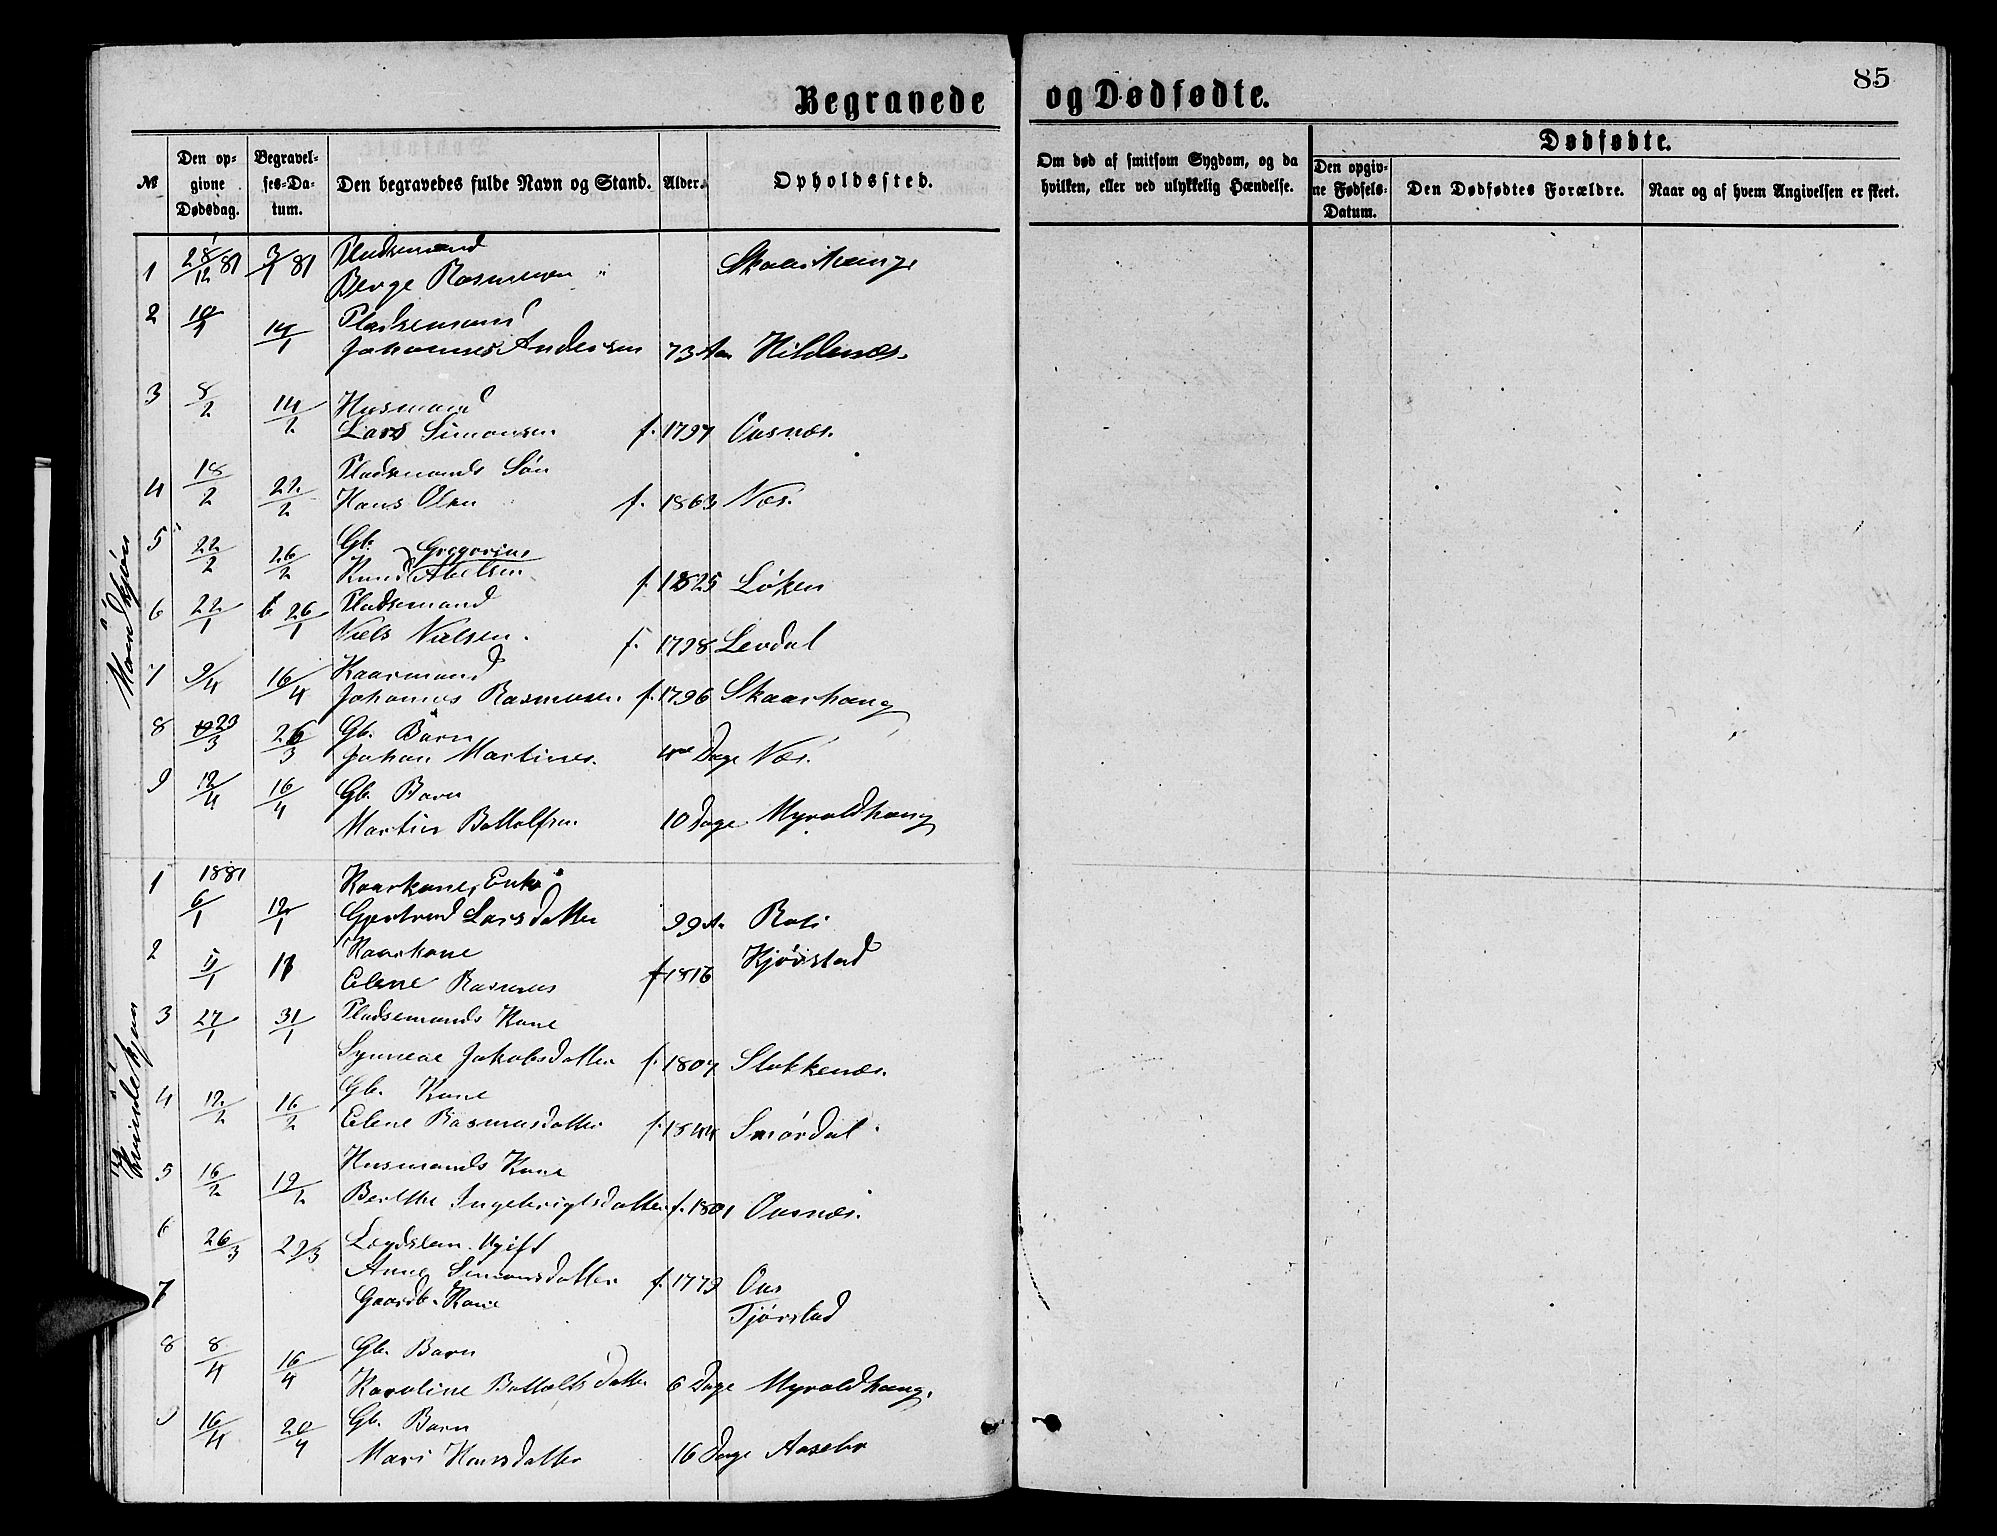 85
Begravede og Dødfødte.
№
Den opgivne Dødsdag.
Begravelses-Datum.
Den begravedes fulde Navn og Stand.
Alder.
Opholdssted.
Om død af smitsom Sygdom, og da hvilken, eller ved ulykkelig Hændelse.
Dødfødte.
Den opgivne Fødsels-Datum.
Den Dødfødtes Forældre.
Naar og af hvem Angivelsen er skeet.
Mandkjøn
1 28/12 81 3/1 81 Pladsemand
Berge Rasmussen
2 10/1 14/1 Pladsemand
Johannes Andersen 73 Aar Hildenæs.
3 8/2 14/2 Husmand
Lars Simonsen f. 1797 Ousnæs.
4 18/2 22/2 Pladsmands Søn
Hans Olsen f. 1863 Næs.
5 22/2 26/2 Gb. Greggorius
Knud Abelsen f. 1825 Löken
6 22/1 26/1 Pladsemand
Niels Nielsen. f. 1798 Levdal
7 9/4 16/4 Kaarmand
Johannes Rasmussen f. 1796 Skaarhaug
8 23/3 26/3 Gb. Barn
Johan Martines. Dage Næs.
9 12/4 16/4 Gb. Barn
Martin Bottolfsen 10 Dage Myroldhaug
Kvindekjøn
1 1881
6/1 12/1 Kaarkone, Enke
Gjertrud Larsdatter 99 A. Roti
2 11/1 Kaarkone Kjörstad
Elene Rasmus f 1816
3 27/1 31/1 Pladsemands Kone
Synneve Jakobsdatter f. 1807 Stokkenæs.
4 12/2 16/2 Gb. Kone
Elene Rasmusdatter f. 1844 Smördal.
5 16/2 19/2 Husmands Kone
Berthe Ingebrigtsdatter f. 1801 Ousnæs.
6 26/3 29/3 Lægdslem. Ugift
Anne Simonsdatter f. 1779 Ous
7 Gaardb. Kone Tjörstad
8 8/4 16/4 Gb. Barn
Karoline Bottolfsdatter 6 Dage Myroldhaug.
9 16/4 20/4 Gb. Barn
Mari Hansdatter 16 Dage Aasebø